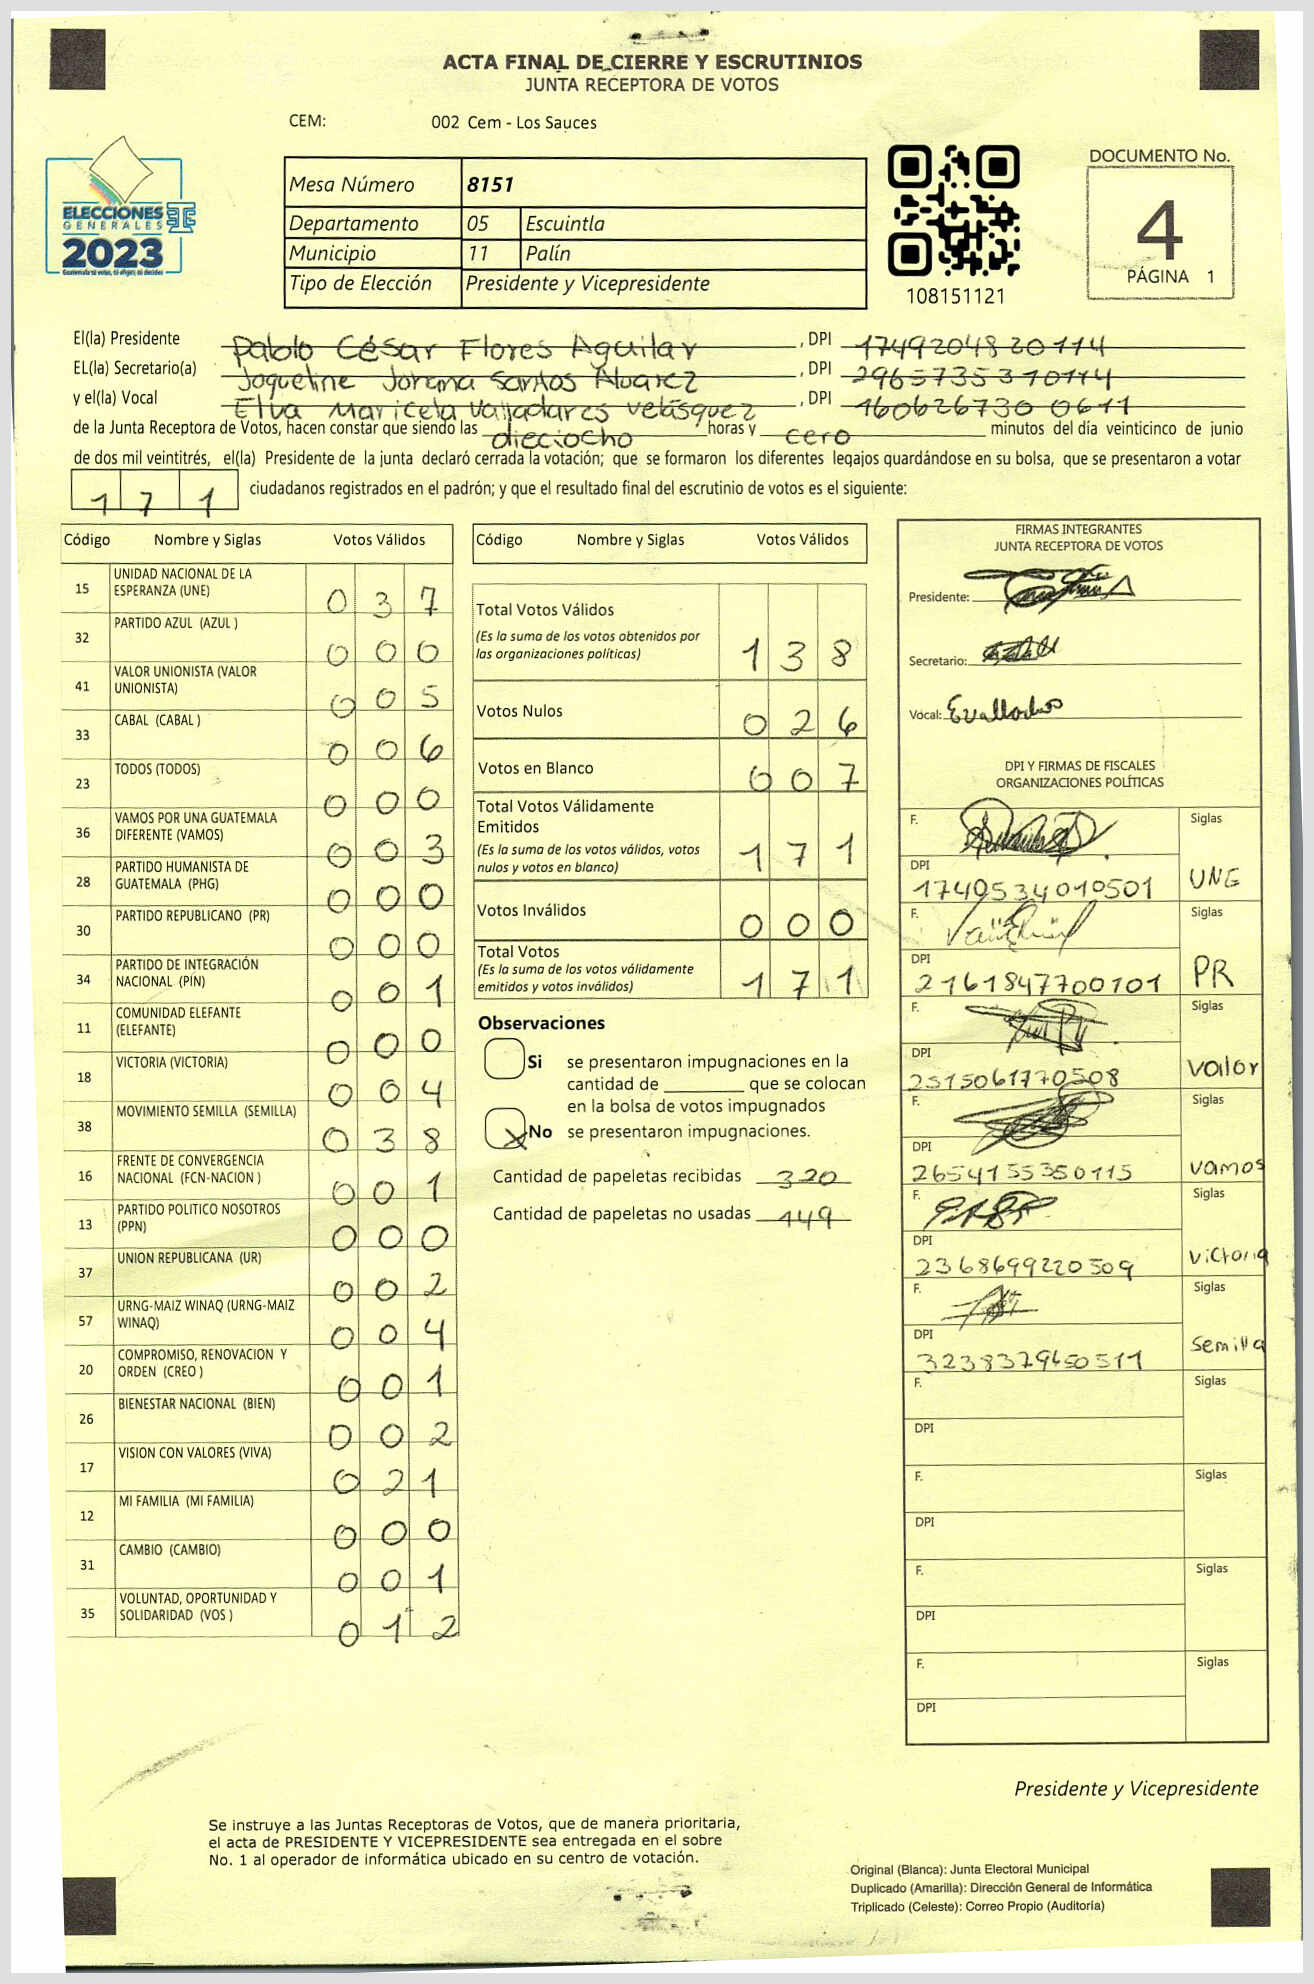 ACTA FINAL DE CIERRE Y ESCRUTINIOS
JUNTA RECEPTORA DE VOTOS
CEM: 002 Cem - Los Sauces
ELECCIONES
GENERALES
2023
Guatemala tú votas, tú eliges, tú decides
Mesa Número 8151
Departamento 05 Escuintla
Municipio 11 Palín
Tipo de Elección Presidente y Vicepresidente
108151121
DOCUMENTO No.
4
PÁGINA 1
El(la) Presidente Pablo César Flores Aguilar , DPI 1749204820114
EL(la) Secretario(a) Joqueline Johana Santos Alvarez , DPI 2965735310114
y el(la) Vocal Elva Maricela Valladares Velásquez , DPI 160626730 0611
de la Junta Receptora de Votos, hacen constar que siendo las dieciocho horas y cero minutos del día veinticinco de junio
de dos mil veintitrés, el(la) Presidente de la junta declaró cerrada la votación; que se formaron los diferentes legajos guardándose en su bolsa, que se presentaron a votar
171 ciudadanos registrados en el padrón; y que el resultado final del escrutinio de votos es el siguiente:
Código Nombre y Siglas Votos Válidos
15 UNIDAD NACIONAL DE LA ESPERANZA (UNE) 037
32 PARTIDO AZUL (AZUL ) 000
41 VALOR UNIONISTA (VALOR UNIONISTA) 005
33 CABAL (CABAL ) 006
23 TODOS (TODOS) 000
36 VAMOS POR UNA GUATEMALA DIFERENTE (VAMOS) 003
28 PARTIDO HUMANISTA DE GUATEMALA (PHG) 000
30 PARTIDO REPUBLICANO (PR) 000
34 PARTIDO DE INTEGRACIÓN NACIONAL (PIN) 001
11 COMUNIDAD ELEFANTE (ELEFANTE) 000
18 VICTORIA (VICTORIA) 004
38 MOVIMIENTO SEMILLA (SEMILLA) 038
16 FRENTE DE CONVERGENCIA NACIONAL (FCN-NACION ) 001
13 PARTIDO POLITICO NOSOTROS (PPN) 000
37 UNION REPUBLICANA (UR) 002
57 URNG-MAIZ WINAQ (URNG-MAIZ WINAQ) 004
20 COMPROMISO, RENOVACION Y ORDEN (CREO ) 001
26 BIENESTAR NACIONAL (BIEN) 002
17 VISION CON VALORES (VIVA) 021
12 MI FAMILIA (MI FAMILIA) 000
31 CAMBIO (CAMBIO) 001
35 VOLUNTAD, OPORTUNIDAD Y SOLIDARIDAD (VOS ) 012
Código Nombre y Siglas Votos Válidos
Total Votos Válidos 138
(Es la suma de los votos obtenidos por
las organizaciones políticas)
Votos Nulos 026
Votos en Blanco 007
Total Votos Válidamente
Emitidos 171
(Es la suma de los votos válidos, votos
nulos y votos en blanco)
Votos Inválidos 000
Total Votos 171
(Es la suma de los votos válidamente
emitidos y votos inválidos)
Observaciones
Si se presentaron impugnaciones en la
cantidad de ________ que se colocan
en la bolsa de votos impugnados
X No se presentaron impugnaciones.
Cantidad de papeletas recibidas 320
Cantidad de papeletas no usadas 149
FIRMAS INTEGRANTES
JUNTA RECEPTORA DE VOTOS
Presidente:
Secretario:
Vocal: Evalladares
DPI Y FIRMAS DE FISCALES
ORGANIZACIONES POLÍTICAS
F. Siglas
DPI 1740534010501 UNE
F. Siglas
DPI 2161847700101 PR
F. Siglas
DPI 2515061770508 Valor
F. Siglas
DPI 2654155350115 vamos
F. Siglas
DPI 2368699220509 victoria
F. Siglas
DPI 3238379650511 Semilla
F. Siglas
DPI
F. Siglas
DPI
F. Siglas
DPI
F. Siglas
DPI
Presidente y Vicepresidente
Se instruye a las Juntas Receptoras de Votos, que de manera prioritaria,
el acta de PRESIDENTE Y VICEPRESIDENTE sea entregada en el sobre
No. 1 al operador de informática ubicado en su centro de votación.
Original (Blanca): Junta Electoral Municipal
Duplicado (Amarilla): Dirección General de Informática
Triplicado (Celeste): Correo Propio (Auditoría)